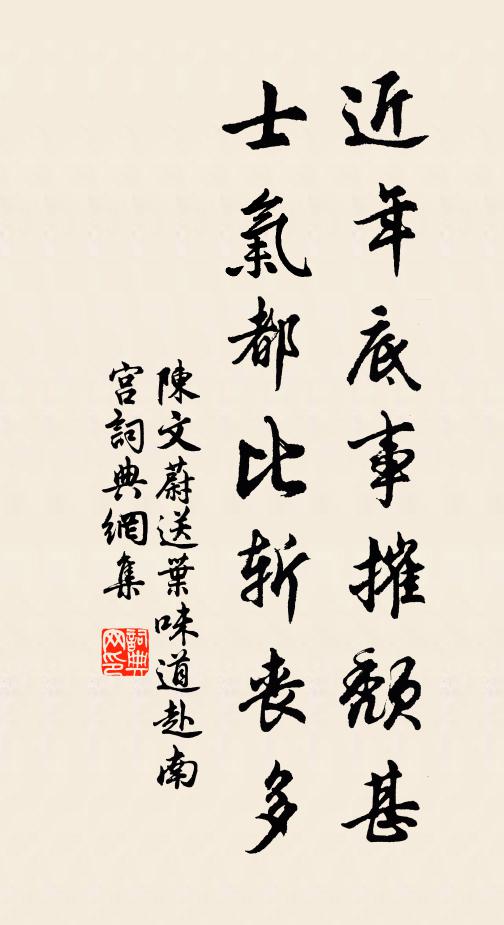 近年底事摧頹甚
士氣都比斲喪多
陳文蔚送葉味道赴南
宮詞典網集
詞典網印